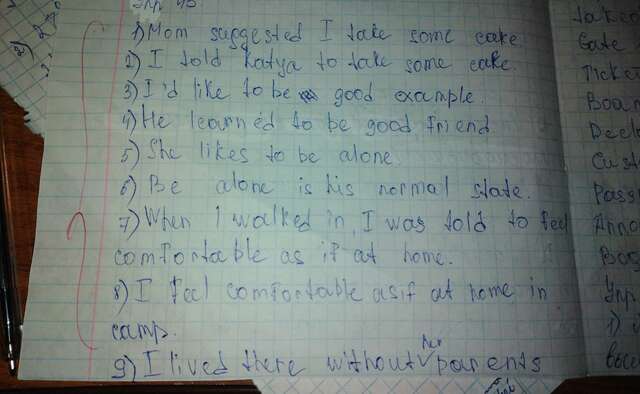 Упр 45.
1) Mom suggested I take some cake.
2) I told Katya to take some cake.
3) I'd like to be good example.
4) He learned to be good friend
5) She likes to be alone.
6) Be alone is his normal state.
7) When I walked in, I was told to feel
comfortable as if at home.
8) I feel comfortable as if at home in
camp.
9) I lived there without parents
Gate
Ticket
Boar
Decl
Cust
Pass
Anno
Упр
1)